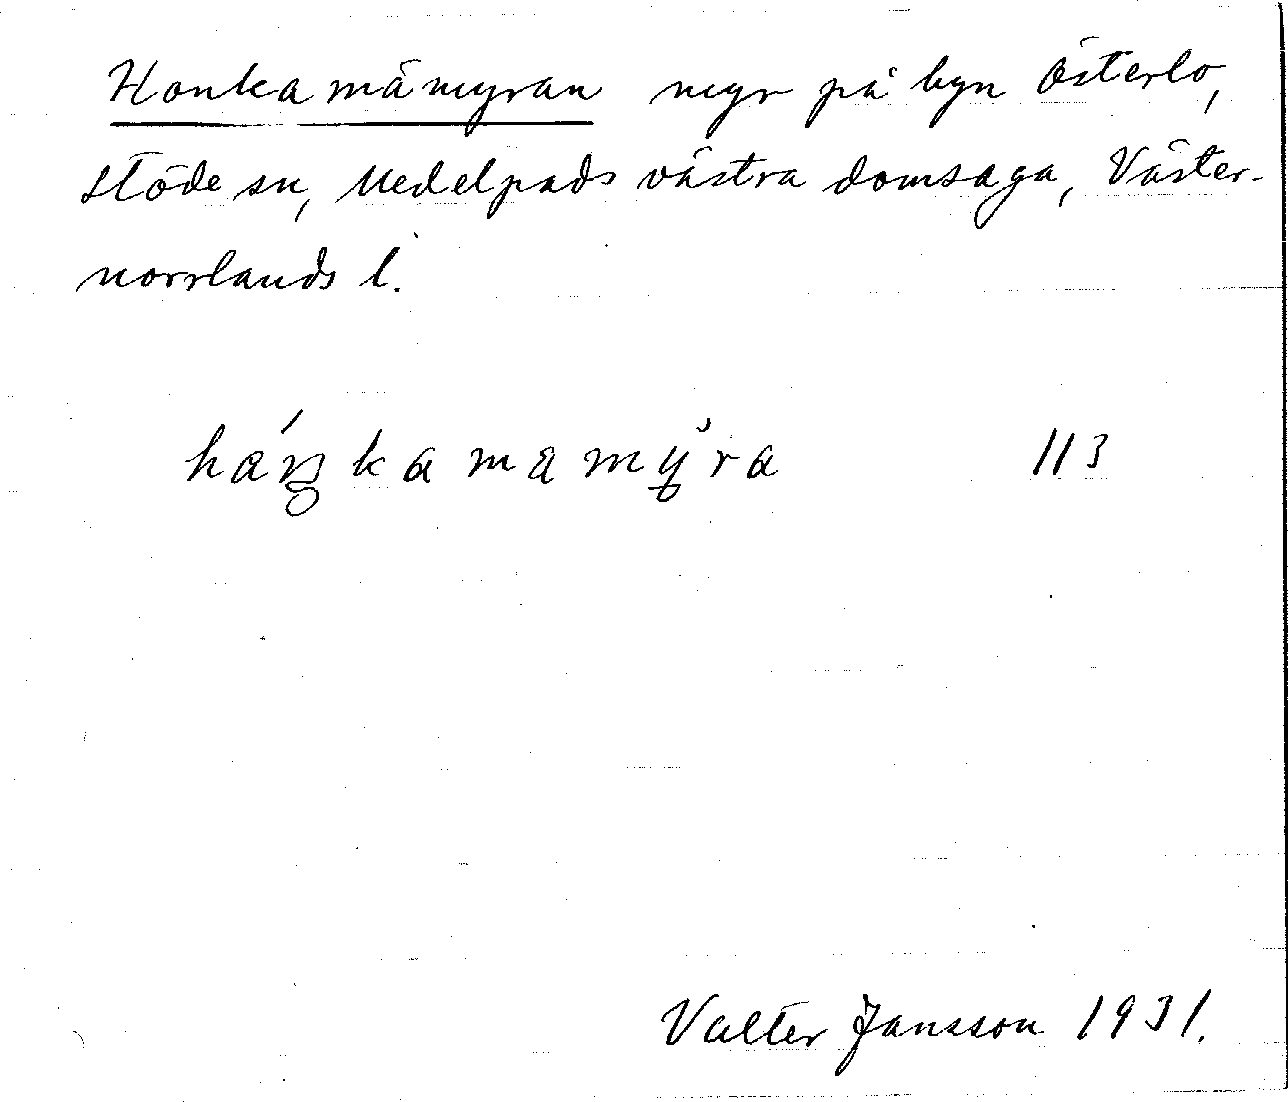 Honkamåmyran myr på byn Österlo,
Stöde sn, Medelpads västra domsaga, Väster-
norrlands l.
háŋkamamy̆ra 113
Valter Jansson 1931.